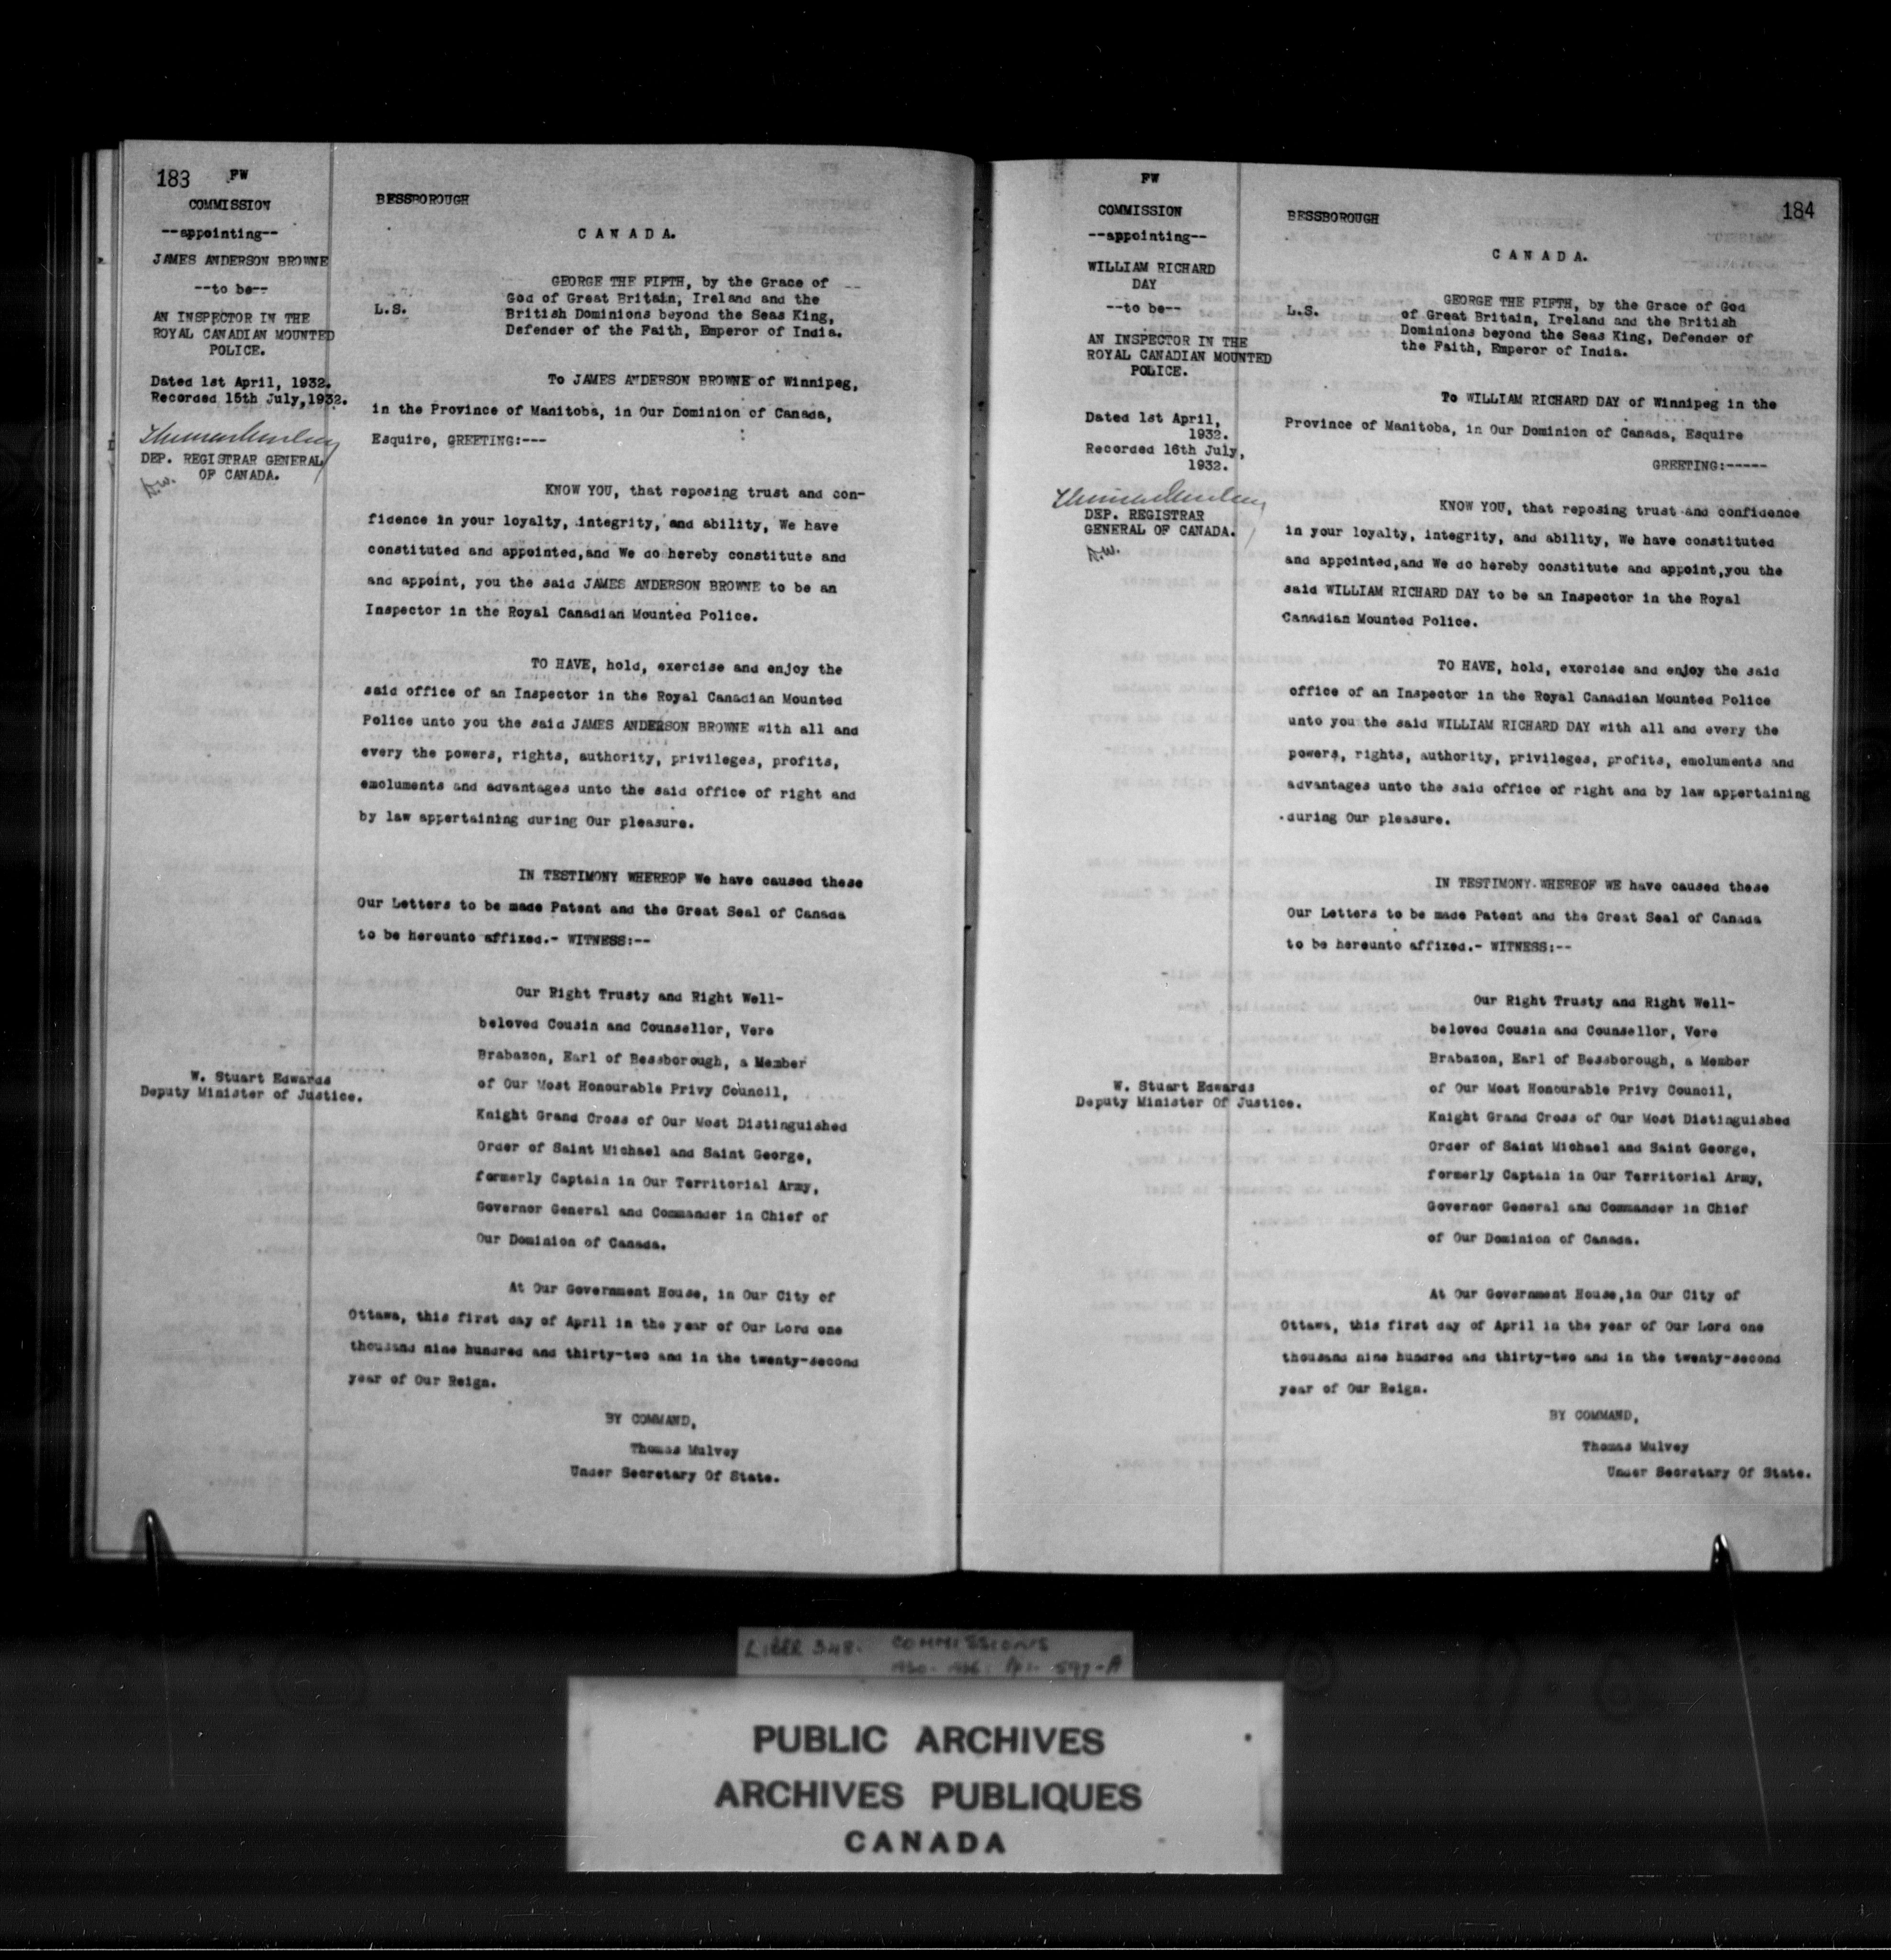 183 FW
COMMISSION
--appointing--
JAMES ANDERSON BROWNE
--to be--
AN INSPECTOR IN THE
ROYAL CANADIAN MOUNTED
POLICE.
Dated 1st April, 1932.
Recorded 15th July,1932.
DEP. REGISTRAR GENERAL
OF CANADA.
W. Stuart Edwards
Deputy Minister of Justice.
BESSBOROUGH
C A N A D A.
L.S.
GEORGE THE FIFTH, by the Grace of
God of Great Britain, Ireland and the
British Dominions beyond the Seas King,
Defender of the Faith, Emperor of India.
To JAMES ANDERSON BROWNE of Winnipeg,
in the Province of Manitoba, in Our Dominion of Canada,
Esquire, GREETING:---
KNOW YOU, that reposing trust and con-
fidence in your loyalty, integrity, and ability, We have
constituted and appointed,and We do hereby constitute and
and appoint, you the said JAMES ANDERSON BROWNE to be an
Inspector in the Royal Canadian Mounted Police.
TO HAVE, hold, exercise and enjoy the
said office of an Inspector in the Royal Canadian Mounted
Police unto you the said JAMES ANDERSON BROWNE with all and
every the powers, rights, authority, privileges, profits,
emoluments and advantages unto the said office of right and
by law appertaining during Our pleasure.
IN TESTIMONY WHEREOF We have caused these
Our Letters to be made Patent and the Great Seal of Canada
to be hereunto affixed.- WITNESS:--
Our Right Trusty and Right Well-
beloved Cousin and Counsellor, Vere
Brabazon, Earl of Bessborough, a Member
of Our Most Honourable Privy Council,
Knight Grand Cross of Our Most Distinguished
Order of Saint Michael and Saint George,
formerly Captain in Our Territorial Army,
Governor General and Commander in Chief of
Our Dominion of Canada.
At Our Government House, in Our City of
Ottawa, this first day of April in the year of Our Lord one
thousand nine hundred and thirty-two and in the twenty-second
year of Our Reign.
BY COMMAND,
Thomas Mulvey
Under Secretary Of State.
FW
COMMISSION
--appointing--
WILLIAM RICHARD
DAY
--to be--
AN INSPECTOR IN THE
ROYAL CANADIAN MOUNTED
POLICE.
Dated 1st April,
1932.
Recorded 16th July,
1932.
DEP. REGISTRAR
GENERAL OF CANADA.
W. Stuart Edwards
Deputy Minister Of Justice.
184
BESSBOROUGH
C A N A D A.
L.S.
GEORGE THE FIFTH, by the Grace of God
of Great Britain, Ireland and the British
Dominions beyond the Seas King, Defender of
the Faith, Emperor of India.
To WILLIAM RICHARD DAY of Winnipeg in the
Province of Manitoba, in Our Dominion of Canada, Esquire
GREETING:-----
KNOW YOU, that reposing trust and confidence
in your loyalty, integrity, and ability, We have constituted
and appointed,and We do hereby constitute and appoint,you the
said WILLIAM RICHARD DAY to be an Inspector in the Royal
Canadian Mounted Police.
TO HAVE, hold, exercise and enjoy the said
office of an Inspector in the Royal Canadian Mounted Police
unto you the said WILLIAM RICHARD DAY with all and every the
powers, rights, authority, privileges, profits, emoluments and
advantages unto the said office of right and by law appertaining
during Our pleasure.
IN TESTIMONY WHEREOF WE have caused these
Our Letters to be made Patent and the Great Seal of Canada
to be hereunto affixed.- WITNESS:--
Our Right Trusty and Right Well-
beloved Cousin and Counsellor, Vere
Brabazon, Earl of Bessborough, a Member
of Our Most Honourable Privy Council,
Knight Grand Cross of Our Most Distinguished
Order of Saint Michael and Saint George,
formerly Captain in Our Territorial Army,
Governor General and Commander in Chief
of Our Dominion of Canada.
At Our Government House,in Our City of
Ottawa, this first day of April in the year of Our Lord one
thousand nine hundred and thirty-two and in the twenty-second
year of Our Reign.
BY COMMAND,
Thomas Mulvey
Under Secretary Of State.
LIBER 348. COMMISSIONS
PUBLIC ARCHIVES
ARCHIVES PUBLIQUES
CANADA